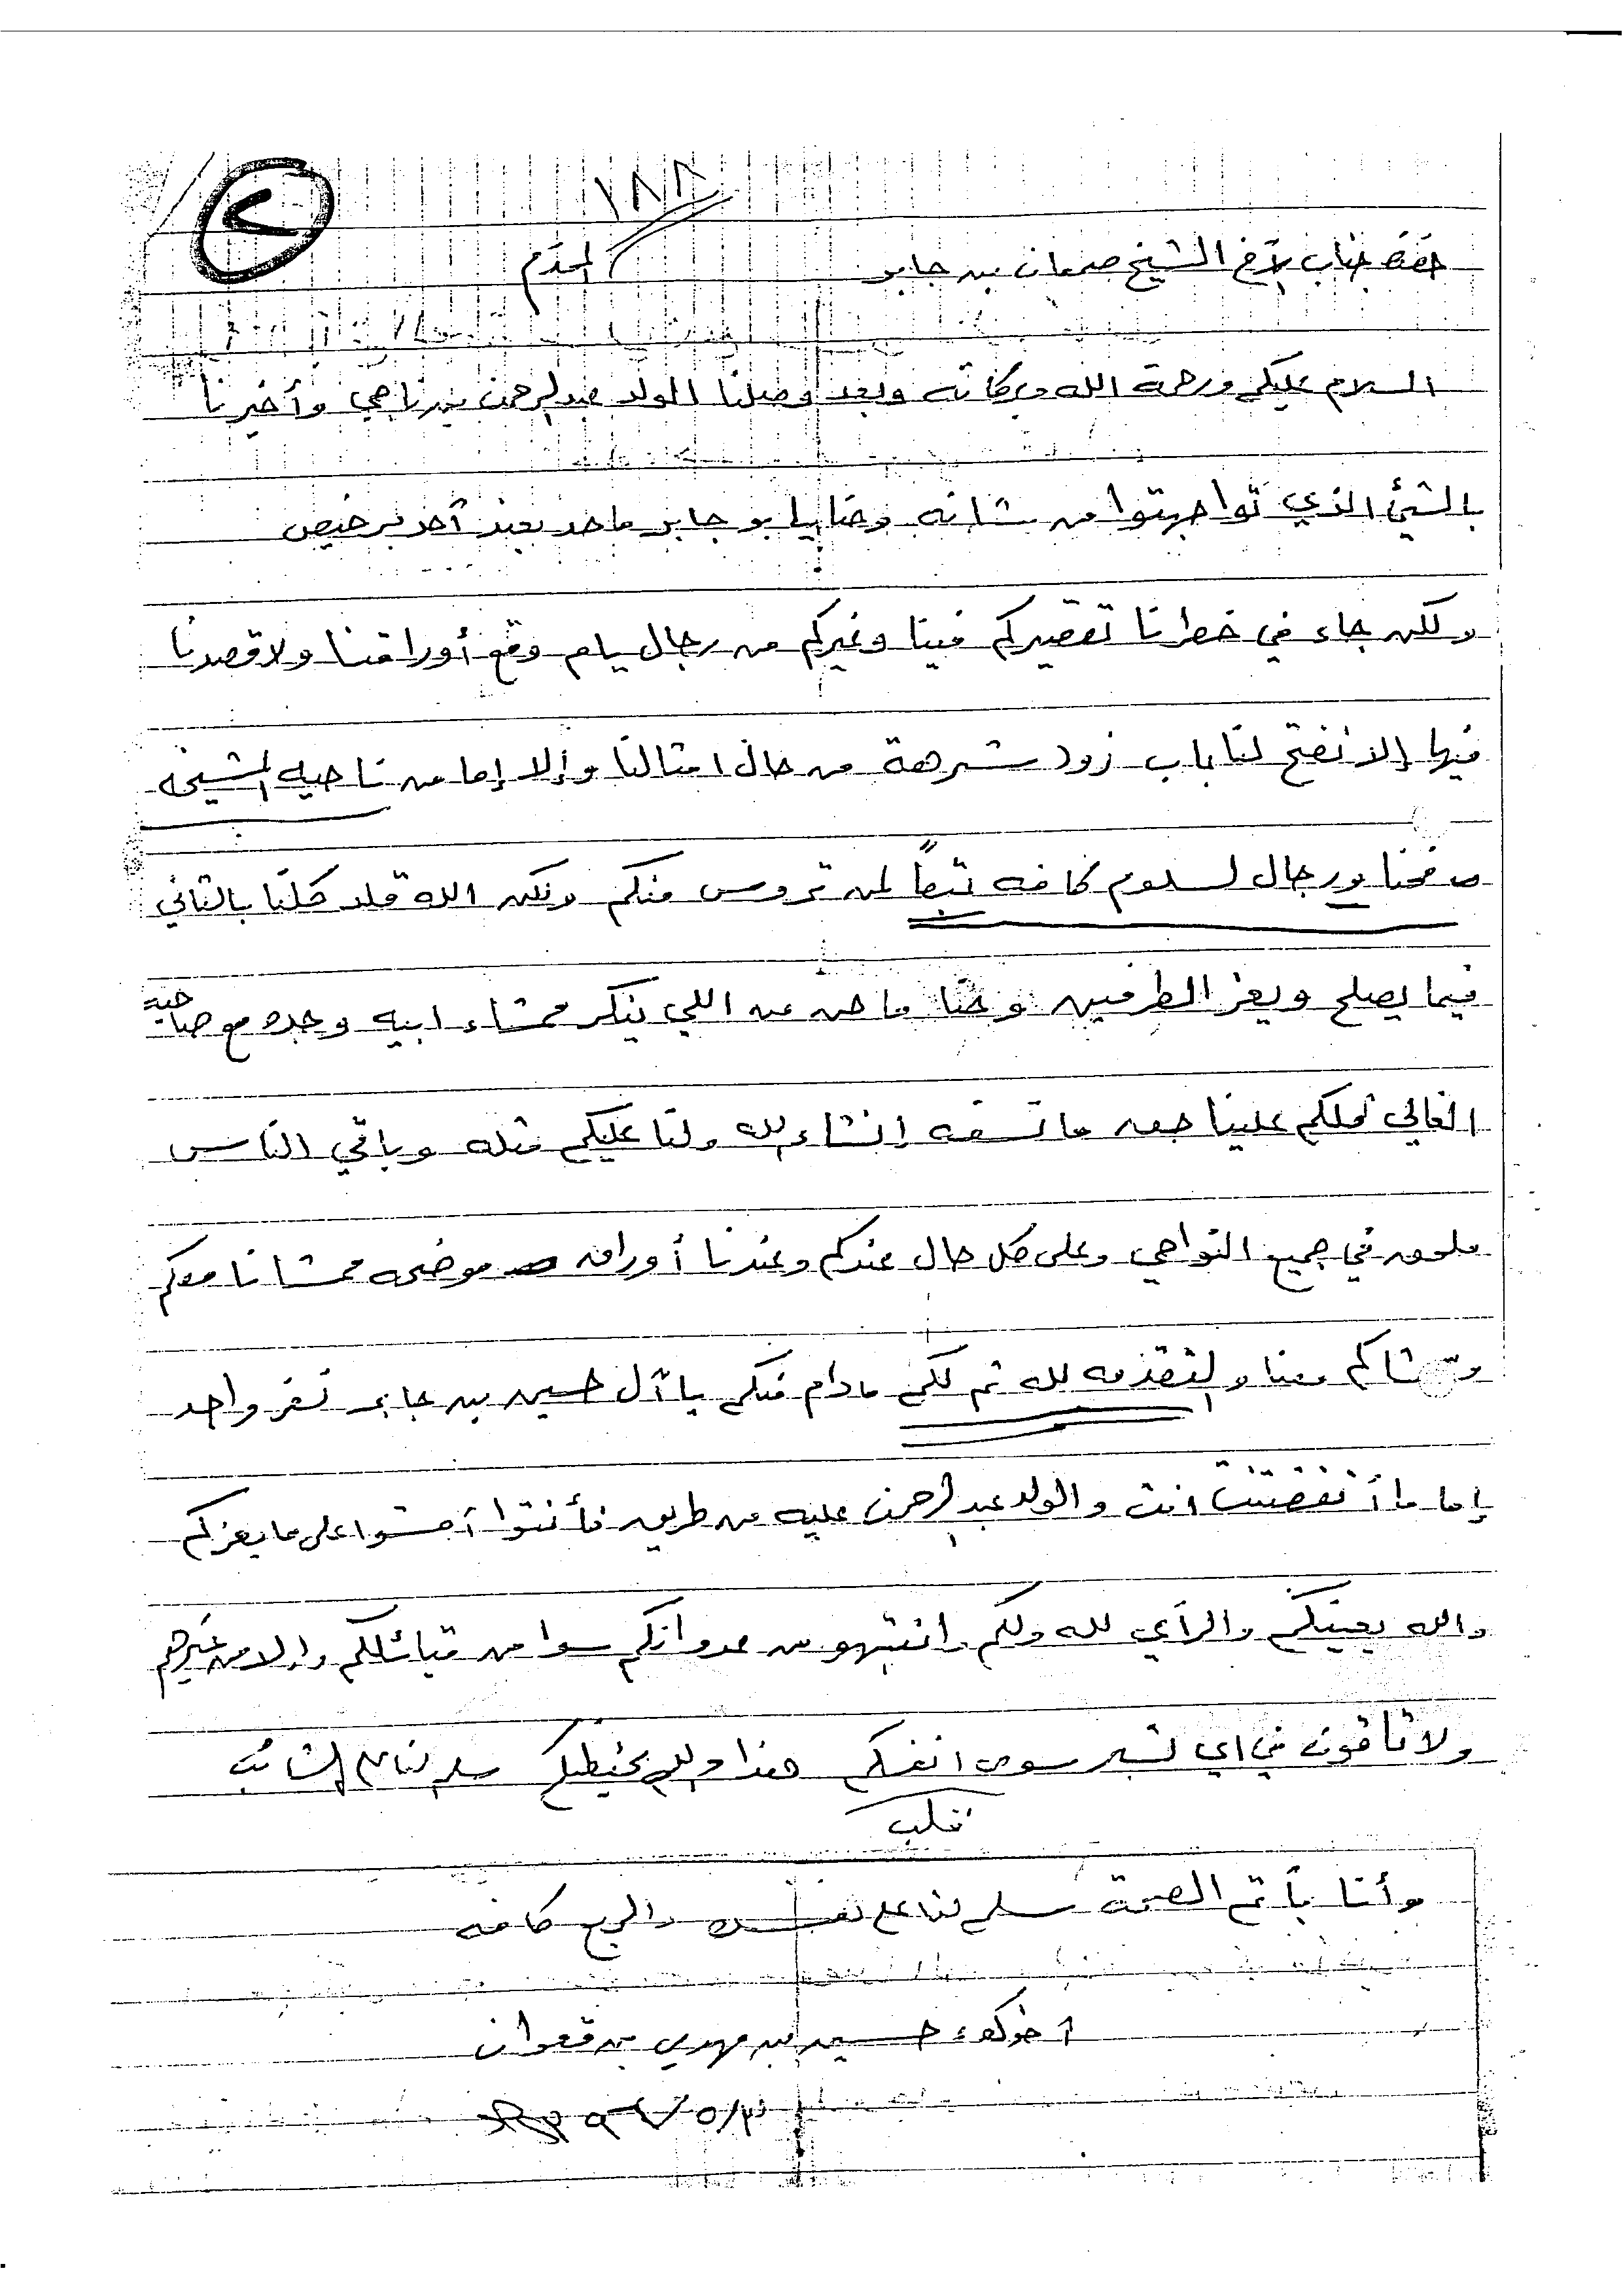 ١٨٨
٢
حضرة جناب لأخ الشيخ صمعان بن جابر المحترم
السلام عليكم ورحمة الله وبركاته وبعد وصلنا الولد عبدالرحمن بن ناجي وأخبرنا
بالشيئ الذي تواجهتوا من شانه وحنا يا بو جابر ماحد بعند أحد برخيص
ولكن جاء في خطرنا تقصيركم فينا وغيركم من رجال يام وقع أوراقنا ولا قصدنا
فيها إلا نفتح لنا باب زود شرهة من حال امثالنا وإلا إما من ناحيه المشيخه
فحنا ورجال لسلوم كافه تبعاً لمن تروس منكم ولكن الله قلد كلنا بالثاني
فيما يصلح ويعز الطرفين وحنا ماحن من اللي ينكر ممشاء ابيه وجده مع صاحبه
الغالي فلكم علينا حق ما نسفه إنشاء لله ولنا عليكم مثله وباقي الناس
ملحق في جميع النواحي وعلى كل حال عندكم وعندنا أوراق موضحه ممشانا معكم
وممشاكم معنا والتقدمه لله ثم لكم مادام منكم يا آل حسين بن جابر نفر واحد
إما ما أتفقت انت والولد عبدالرحمن عليه من طريق فأنتوا أمشوا على ما يعزكم
والله يعينكم والرأي لله ولكم وانتبهو من عدوانكم سوا من قبائلكم وإلا من غيرهم
ولا ثاقون في اي شبر سوى انفسكم هذا والله يحفظكم سلم لنا على الشائب
قلب
وأنا بأتم الصحة سلم لنا على نفسك والربع كافه
أخوكم حسين بن مهدي بن قعوان